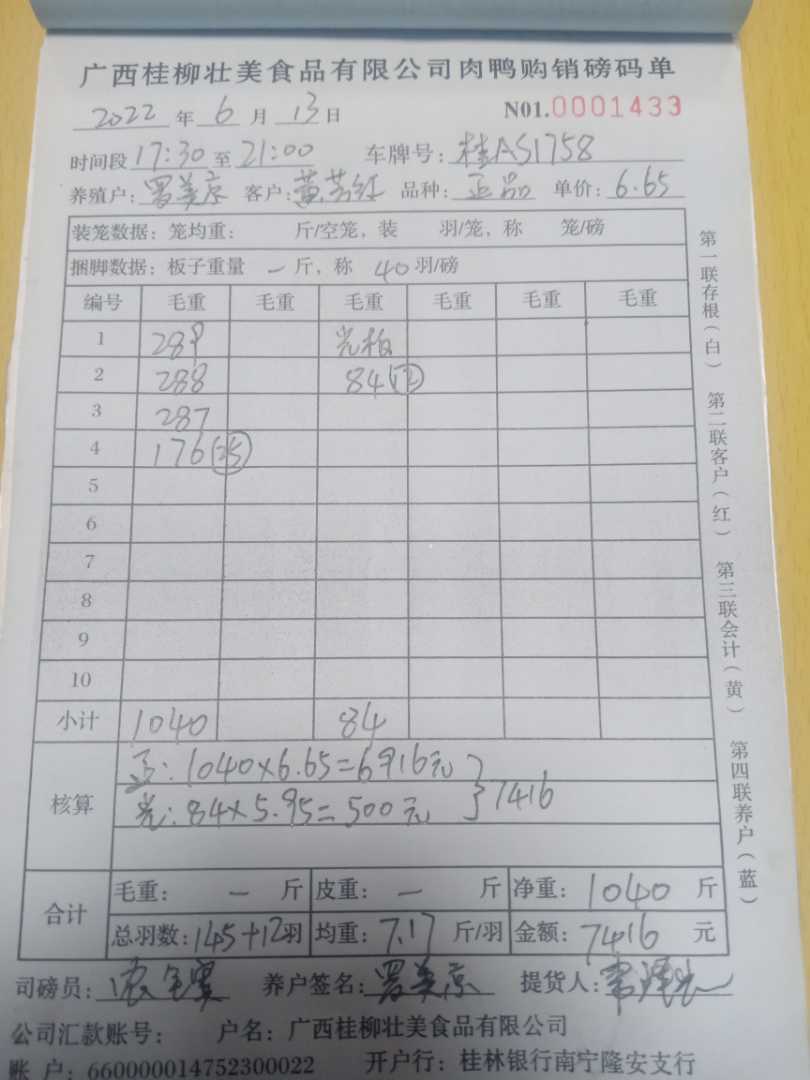 广西桂柳壮美食品有限公司肉鸭购销磅码单
2022 年 6 月 13 日 N01.0001433
时间段 17:30 至 21:00 车牌号: 桂AS1758
养殖户: 罗美京 客户: 黄芳红 品种: 正品 单价: 6.65
装笼数据: 笼均重: 斤/空笼, 装 羽/笼, 称 笼/磅
捆脚数据: 板子重量 一 斤, 称 40 羽/磅
编号 毛重 毛重 毛重 毛重 毛重 毛重
1 289 光板
2 288 84(12)
3 287
4 176(25)
5
6
7
8
9
10
小计 1040 84
核算 正: 1040×6.65=6916元 } 7416
光: 84×5.95=500元
合计 毛重: 一 斤 皮重: 一 斤 净重: 1040 斤
总羽数: 145+12羽 均重: 7.17 斤/羽 金额: 7416 元
司磅员: 养户签名: 罗美京 提货人:
公司汇款账号: 户名: 广西桂柳壮美食品有限公司
账 户: 660000014752300022 开户行: 桂林银行南宁隆安支行
第一联存根(白) 第二联客户(红) 第三联会计(黄) 第四联养户(蓝)